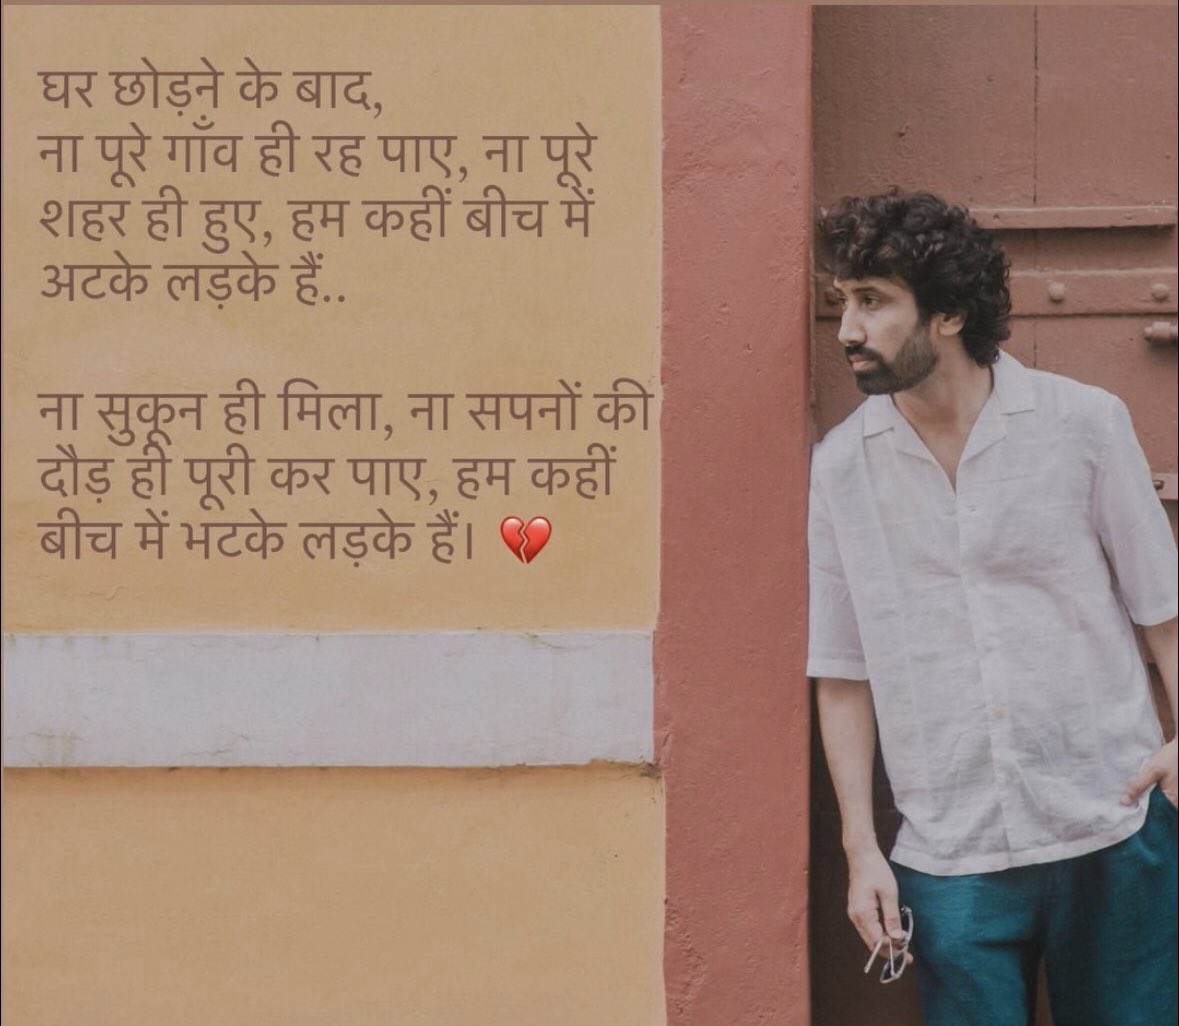 घर छोड़ने के बाद,
ना पूरे गाँव ही रह पाए, ना पूरे
शहर ही हुए, हम कहीं बीच में
अटके लड़के हैं..
ना सुकून ही मिला, ना सपनों की
दौड़ ही पूरी कर पाए, हम कहीं
बीच में भटके लड़के हैं। 💔